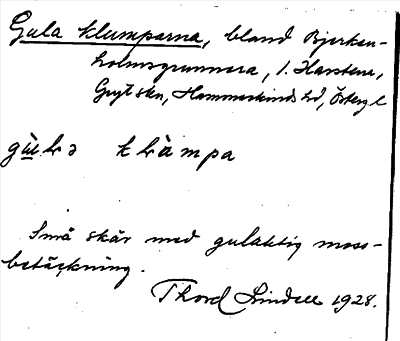 Gula klumparna, bland Bjerken-
holmsgrunnera, i. Harstena,
Gryt skn, Hammarkinds hd, Östergl
gùlɑ klùmpa
Små skär med gulaktig moss-
betäckning.
Thord Lindell 1928.